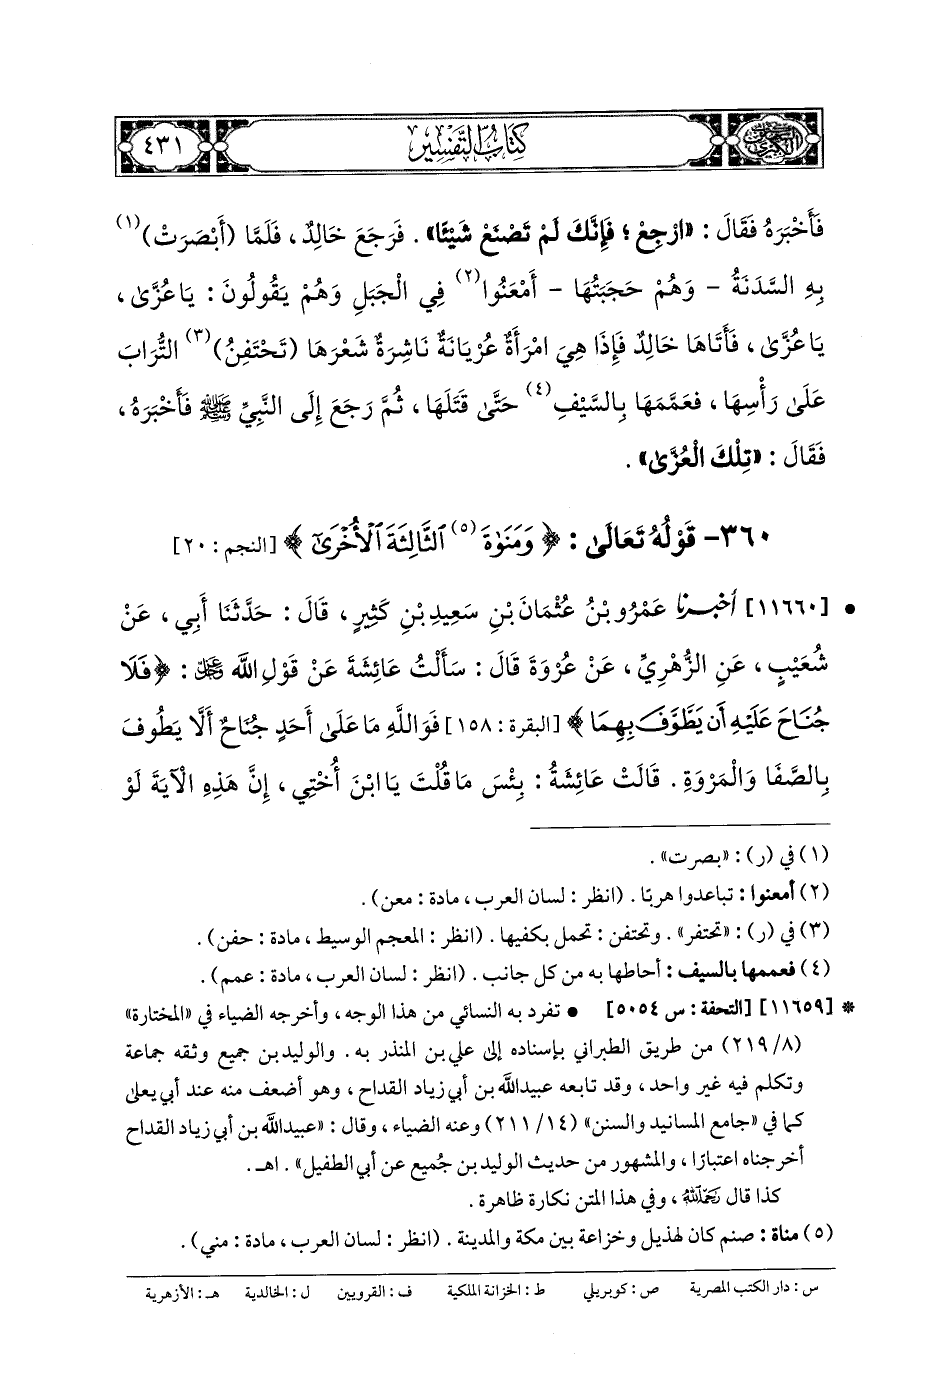 ٤٣١
كتاب التفسير
السنن الكبرى
فَأَخْبَرَهُ فَقَالَ : «ارْجِعْ ؛ فَإِنَّكَ لَمْ تَصْنَعْ شَيْئًا» . فَرَجَعَ خَالِدٌ ، فَلَمَّا (أَبْصَرَتْ)(١)
بِهِ السَّدَنَةُ - وَهُمْ حَجَبَتُهَا - أَمْعَنُوا(٢) فِي الْجَبَلِ وَهُمْ يَقُولُونَ : يَا عُزَّىٰ ،
يَا عُزَّىٰ ، فَأَتَاهَا خَالِدٌ فَإِذَا هِيَ امْرَأَةٌ عُرْيَانَةٌ نَاشِرَةٌ شَعْرَهَا (تَحْتَفِنُ)(٣) التُّرَابَ
عَلَىٰ رَأْسِهَا ، فَعَمَّمَهَا بِالسَّيْفِ(٤) حَتَّىٰ قَتَلَهَا ، ثُمَّ رَجَعَ إِلَى النَّبِيِّ ﷺ فَأَخْبَرَهُ ،
فَقَالَ : «تِلْكَ الْعُزَّىٰ» .
٣٦٠- قَوْلُهُ تَعَالَىٰ : ﴿ وَمَنَوٰةَ(٥) ٱلثَّالِثَةَ ٱلْأُخْرَىٰٓ ﴾ [النجم : ٢٠]
• [١١٦٦٠] أخبرنا عَمْرُو بْنُ عُثْمَانَ بْنِ سَعِيدِ بْنِ كَثِيرٍ ، قَالَ : حَدَّثَنَا أَبِي ، عَنْ
شُعَيْبٍ ، عَنِ الزُّهْرِيِّ ، عَنْ عُرْوَةَ قَالَ : سَأَلْتُ عَائِشَةَ عَنْ قَوْلِ اللَّه ﷻ : ﴿ فَلَا
جُنَاحَ عَلَيْهِ أَن يَطَّوَّفَ بِهِمَا ﴾ [البقرة : ١٥٨] فَوَاللَّهِ مَا عَلَىٰ أَحَدٍ جُنَاحٌ أَلَّا يَطُوفَ
بِالصَّفَا وَالْمَرْوَةِ . قَالَتْ عَائِشَةُ : بِئْسَ مَا قُلْتَ يَا ابْنَ أُخْتِي ، إِنَّ هَذِهِ الْآيَةَ لَوْ
(١) في (ر) : «بصرت» .
(٢) أمعنوا : تباعدوا هربًا . (انظر : لسان العرب ، مادة : معن) .
(٣) في (ر) : «تحتفر» . وتحتفن : تحمل بكفيها . (انظر : المعجم الوسيط ، مادة : حفن) .
(٤) فعممها بالسيف : أحاطها به من كل جانب . (انظر : لسان العرب ، مادة : عمم) .
* [١١٦٥٩] [التحفة : س ٥٠٥٤] • تفرد به النسائي من هذا الوجه ، وأخرجه الضياء في «المختارة»
(٨/ ٢١٩) من طريق الطبراني بإسناده إلى علي بن المنذر به . والوليد بن جميع وثقه جماعة
وتكلم فيه غير واحد ، وقد تابعه عبيدالله بن أبي زياد القداح ، وهو أضعف منه عند أبي يعلى
كما في «جامع المسانيد والسنن» (١٤/ ٢١١) وعنه الضياء ، وقال : «عبيدالله بن أبي زياد القداح
أخرجناه اعتبارًا ، والمشهور من حديث الوليد بن جُميع عن أبي الطفيل» . اهـ .
كذا قال رَحِمَهُ اللَّهُ ، وفي هذا المتن نكارة ظاهرة .
(٥) مناة : صنم كان لهذيل وخزاعة بين مكة والمدينة . (انظر : لسان العرب ، مادة : مني) .
س : دار الكتب المصرية ص : كوبريلي ط : الخزانة الملكية ف : القرويين ل : الخالدية هـ : الأزهرية